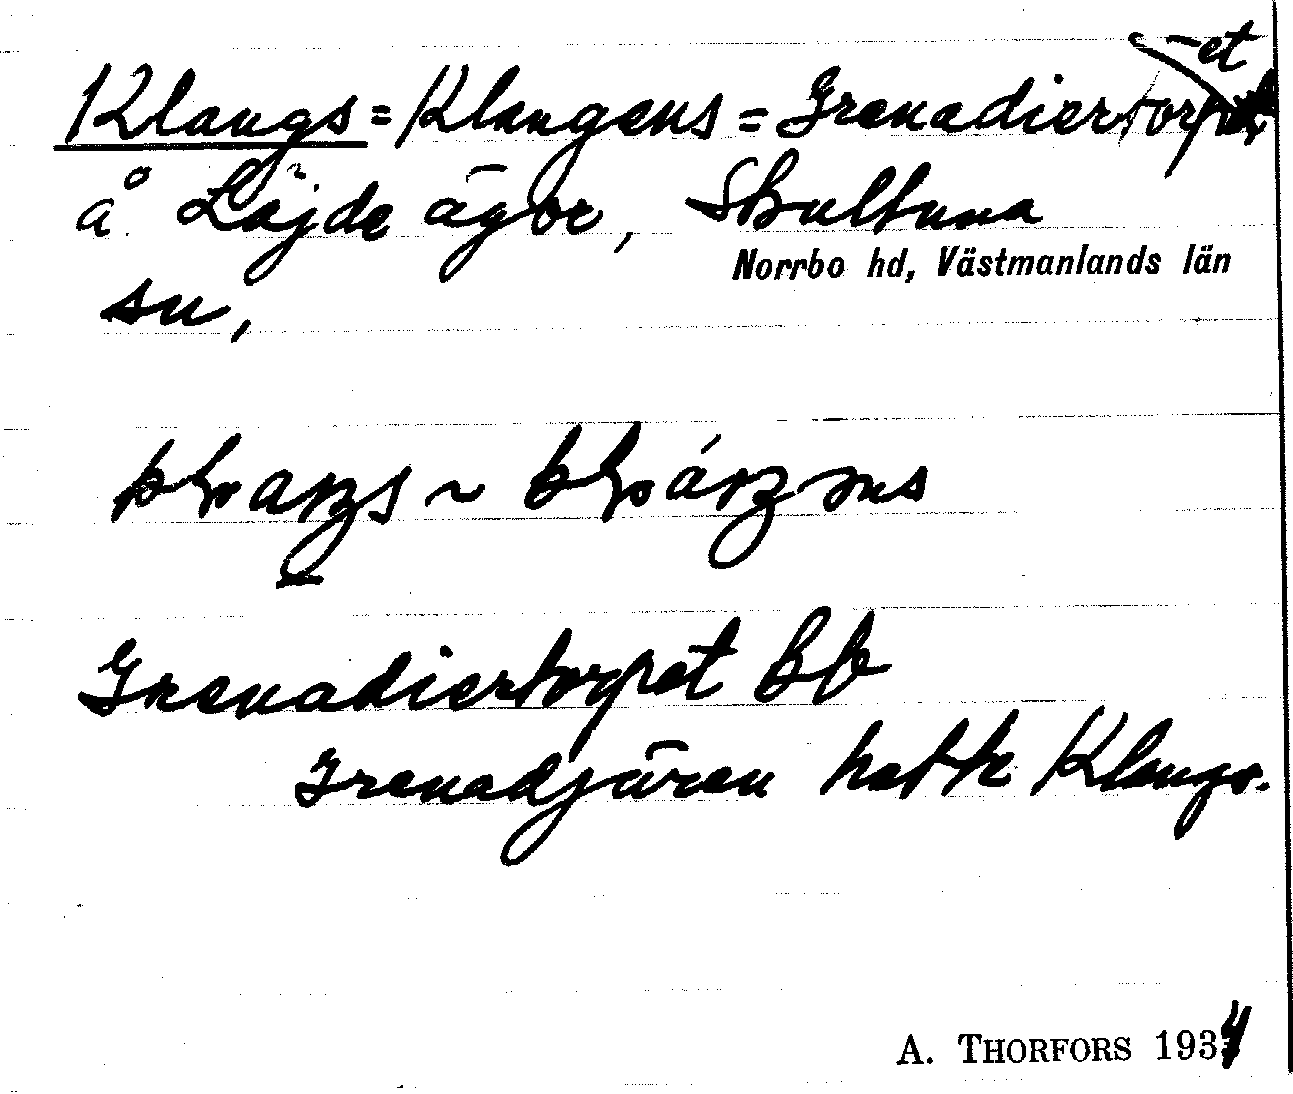 Klangs = Klangens = Grenadiertorpet
å Löjde ägor, Skultuna
Norrbo hd, Västmanlands län
sn,
Grenadiertorpet Bb
Grenadjären hette Klangs.
A. THORFORS 1934